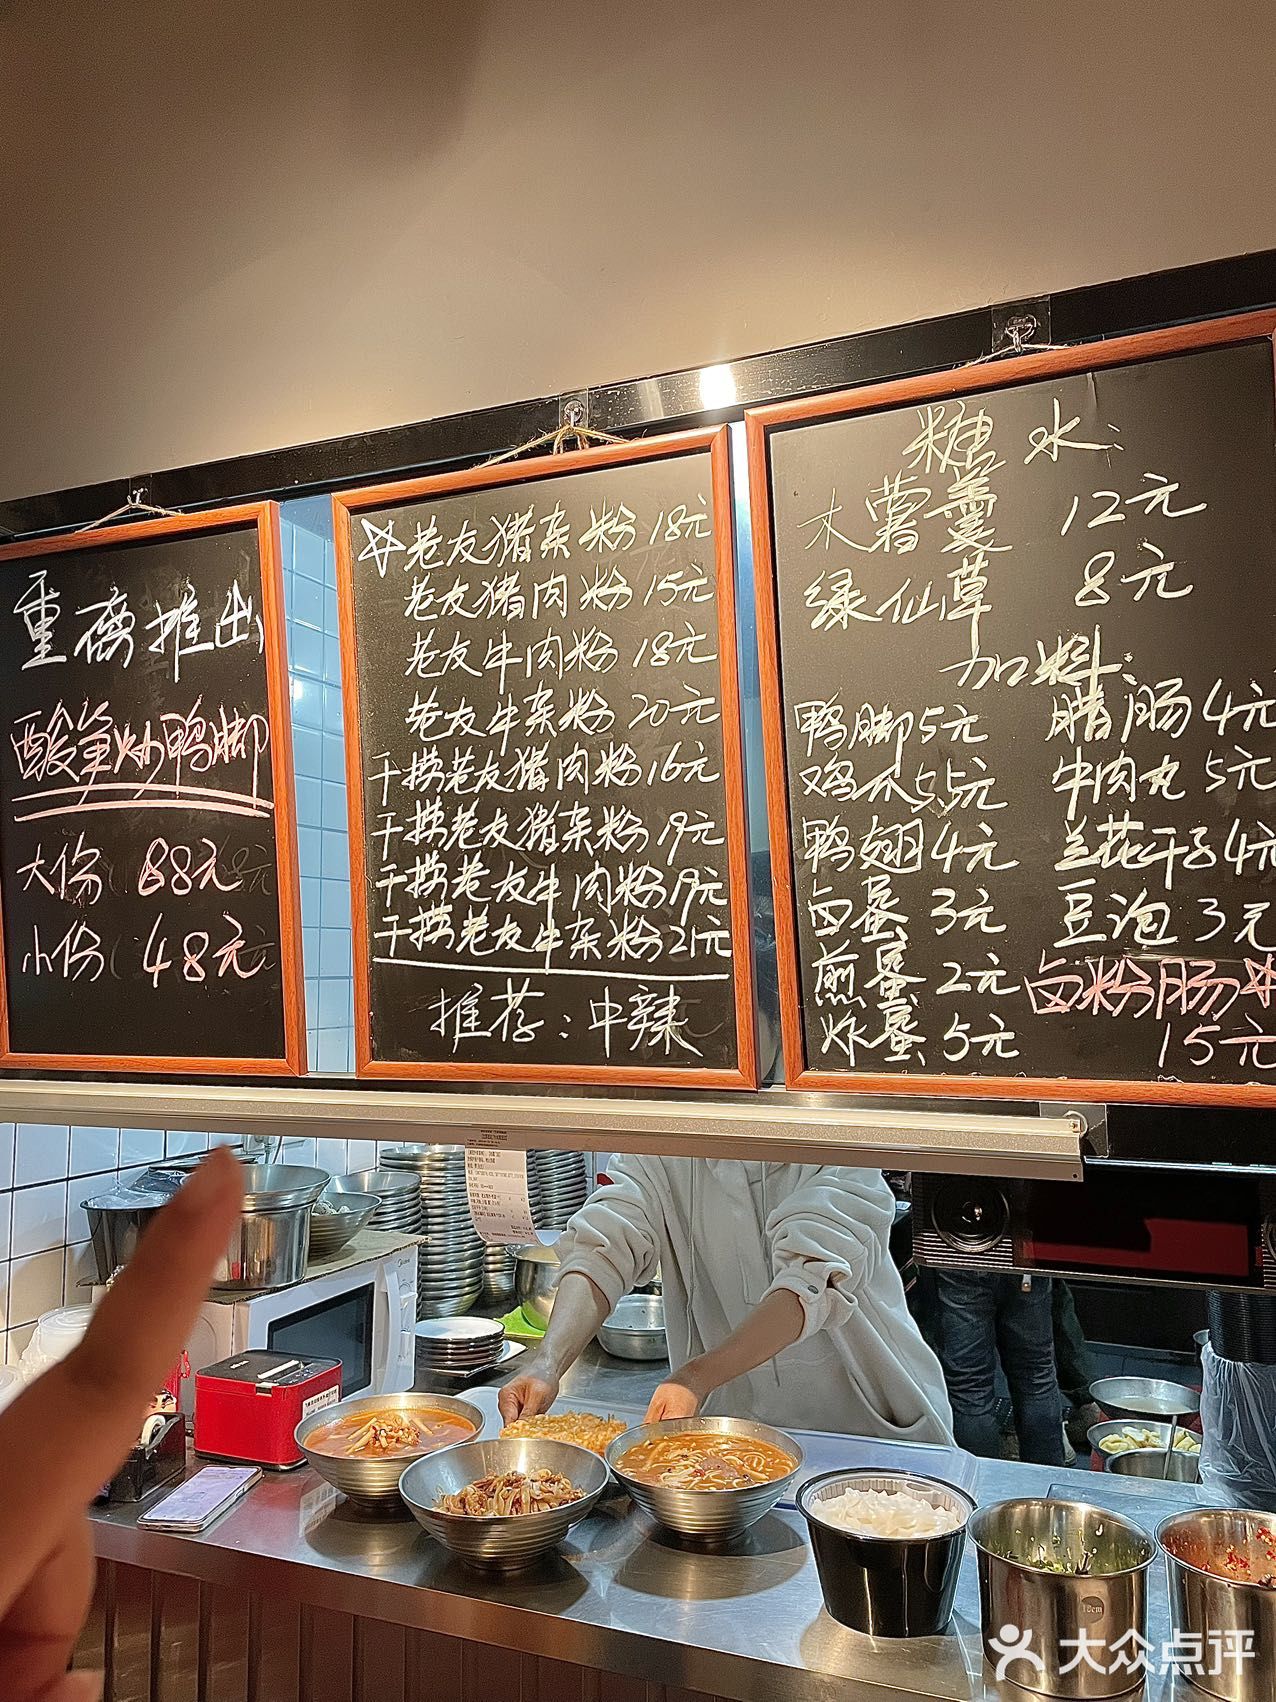 重磅推出
酸笋炒鸭脚
大份 88元
小份 48元
☆老友猪杂粉 18元
老友猪肉粉 15元
老友牛肉粉 18元
老友牛杂粉 20元
干捞老友猪肉粉 16元
干捞老友猪杂粉 19元
干捞老友牛肉粉 19元
干捞老友牛杂粉 21元
推荐：中辣
糖水：
木薯羹 12元
绿仙草 8元
加料：
鸭脚 5元 腊肠 4元
鸡爪 5.5元 牛肉丸 5元
鸭翅 4元 兰花干子 4元
卤蛋 3元 豆泡 3元
煎蛋 2元 卤粉肠☆
炸蛋 5元 15元
大众点评